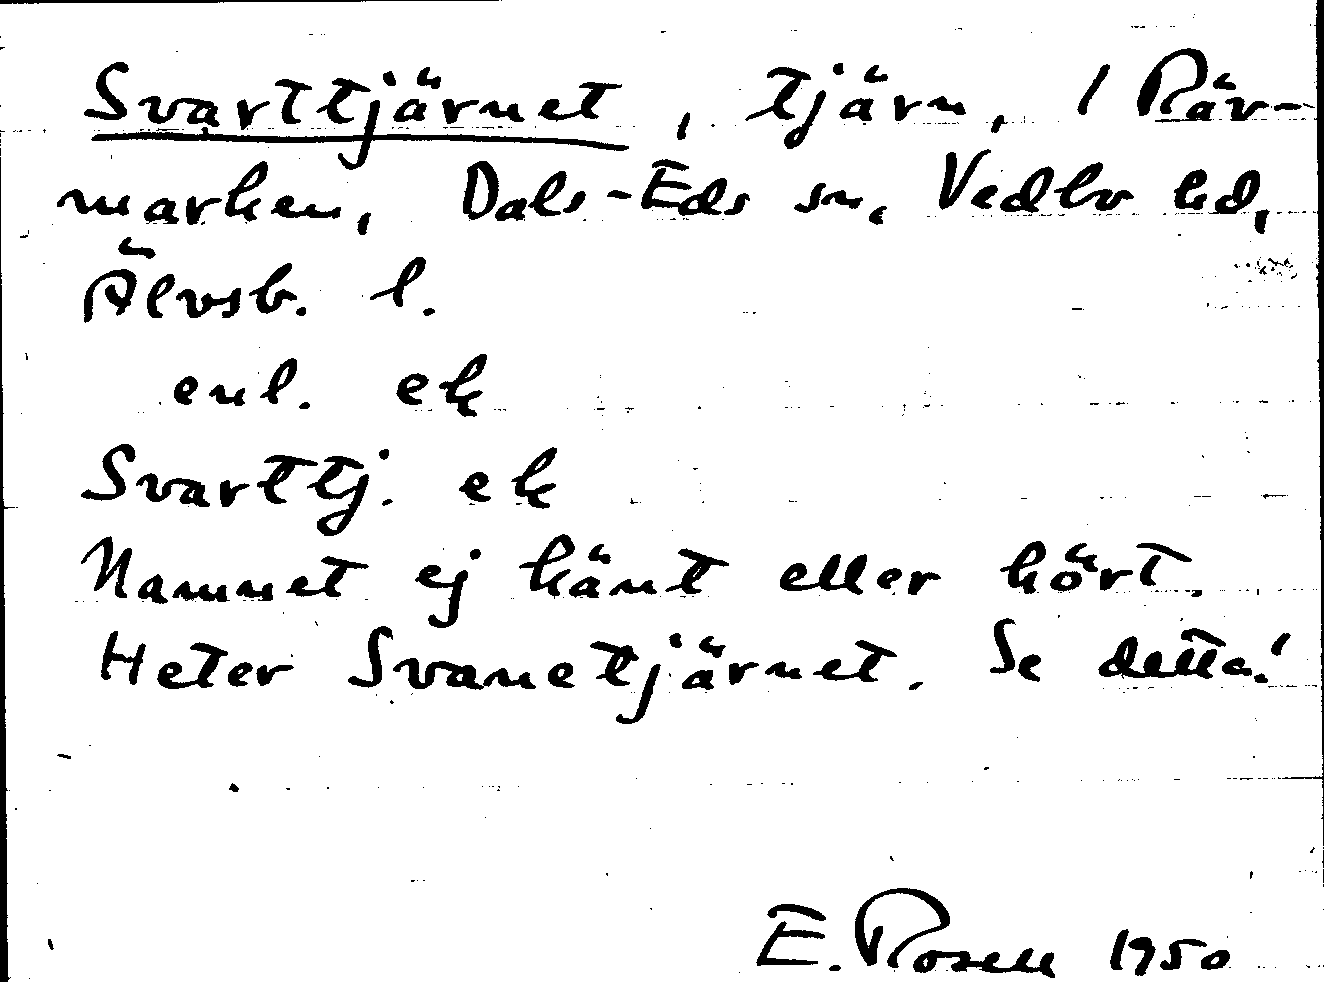 Svarttjärnet, tjärn, / Räv-
marken, Dals-Eds sn, Vedbo hd,
Älvsb. l.
enl. ek
Svarttj. ek
Namnet ej känt eller hört.
Heter Svanetjärnet. Se detta!
E. Rosell 1950